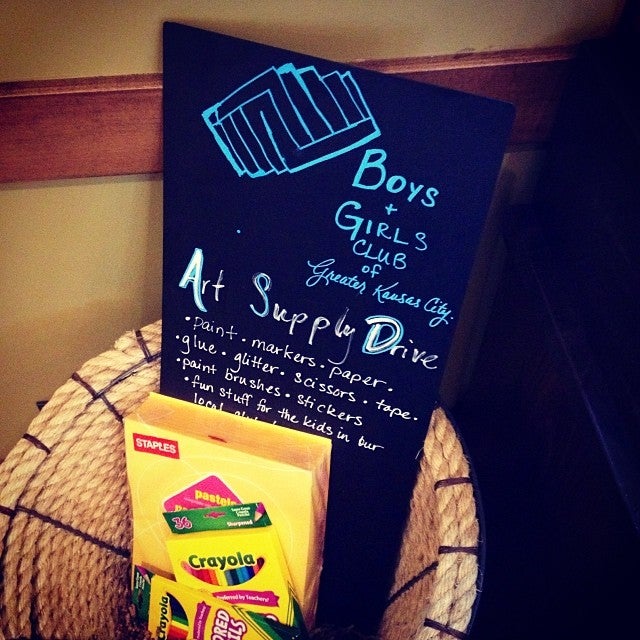 Boys
+
GIRLS
CLUB
of
Greater Kansas City.
Art Supply Drive
• paint • markers • paper •
• glue • glitter • scissors • tape •
• paint brushes • stickers
• fun stuff for the kids in our
local
STAPLES
pastels
36
Sharpened
Crayola
Preferred by Teachers!
Crayola